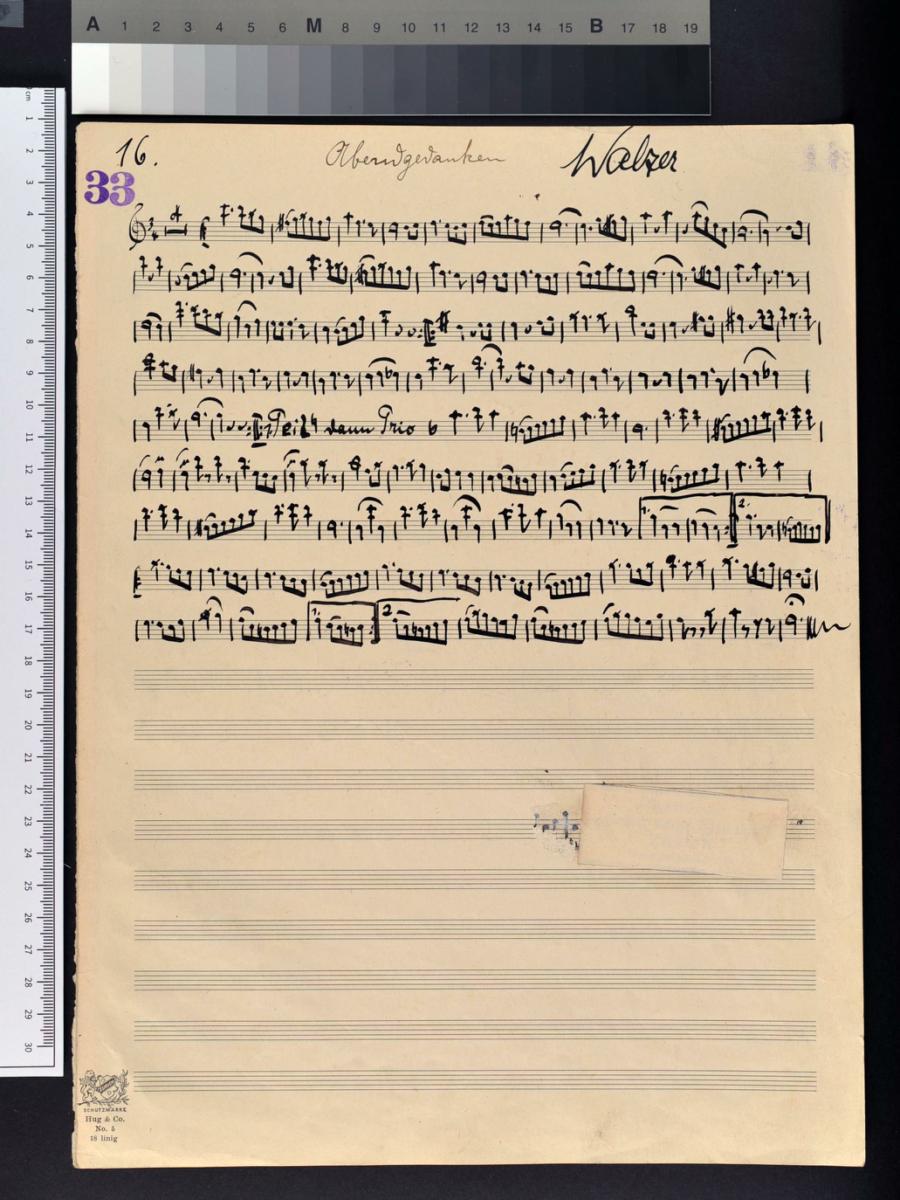 A 1 2 3 4 5 6 M 8 9 10 11 12 13 14 15 B 17 18 19
16. Abendgedanken Walzer
33
4
Teil dann Trio
1. 2.
1. 2.
cm 1 2 3 4 5 6 7 8 9 10 11 12 13 14 15 16 17 18 19 20 21 22 23 24 25 26 27 28 29 30
SCHUTZMARKE
Hug & Co.
No. 5
18 linig